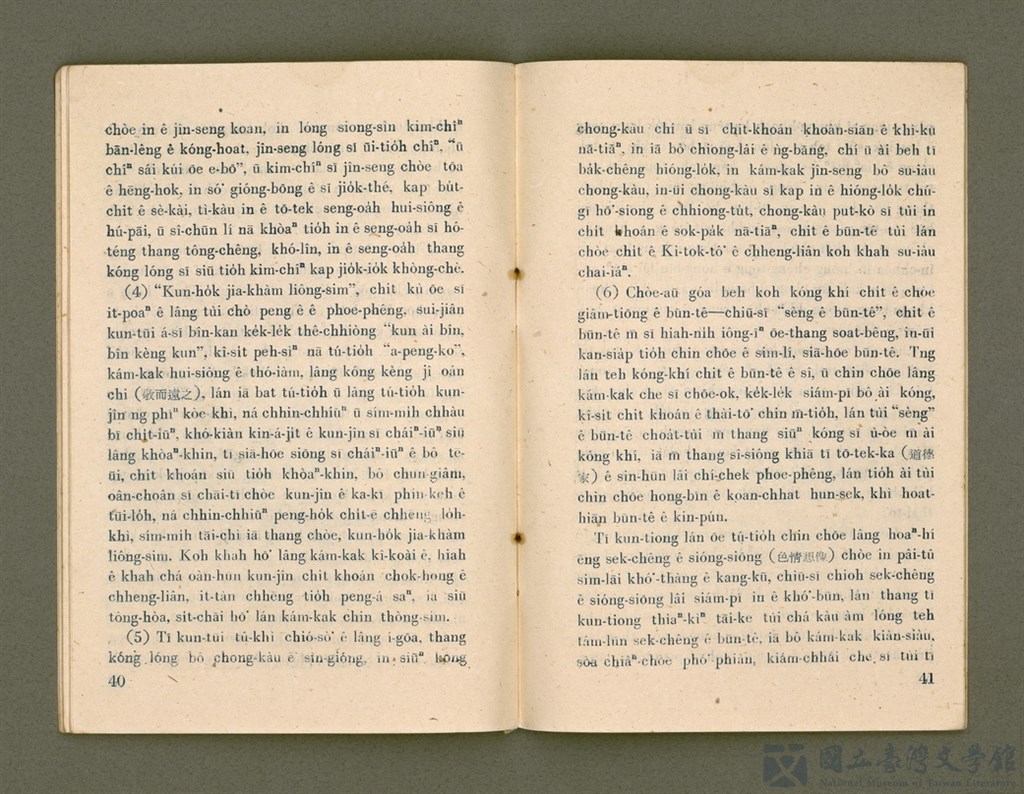 chòe in ê jîn-seng koan, in lóng siong-sìn kim-chîⁿ
bān-lêng ê kóng-hoat, jîn-seng lóng sī ūi-tio̍h chîⁿ, “ū
chîⁿ sái kúi ōe e-bō”, ū kim-chîⁿ sī jîn-seng chòe tōa
ê hēng-hok, in só͘ gióng-bōng ê sī jio̍k-thé, kap bu̍t-
chit ê sè-kài, tì-kàu in ê tō-tek seng-oa̍h hui-siông ê
hú-pāi, ū sî-chūn lí nā khòaⁿ tio̍h in ê seng-oa̍h sī hô-
téng thang tông-chêng, khó-lîn, in ê seng-oa̍h thang
kóng lóng sī siū tio̍h kim-chîⁿ kap jio̍k-io̍k khòng-chè.
(4) “Kun-ho̍k jia-khàm liông-sim”, chit kù ōe sī
it-poaⁿ ê lâng tùi chò peng ê ê phoe-phêng, sui-jiân
kun-tūi á-sī bîn-kan ke̍k-le̍k thê-chhiòng “kun ài bîn,
bîn kèng kun”, kî-si̍t peh-sìⁿ nā tú-tio̍h “a-peng-ko”,
kám-kak hui-siông ê thó-iàm, lâng kóng kèng jî oán
chi (敬而遠之), lán iā bat tú-tio̍h ū lâng tú-tio̍h kun-
jîn ng phīⁿ kòe khì, ná chhin-chhiūⁿ ū sím-mi̍h chhàu
bī chi̍t-iūⁿ, khó-kiàn kin-á-ji̍t ê kun-jîn sī cháiⁿ-iūⁿ siū
lâng khòaⁿ-khin, tī siā-hōe siōng sī cháiⁿ-iūⁿ ê bô tē-
ūi, chit khoán siū tio̍h khòaⁿ-khin, bô chun-giâm,
oân-choân sī chāi-tī chòe kun-jîn ê ka-kī phín-keh ê
tūi-lo̍h, ná chhin-chhiūⁿ peng-ho̍k chi̍t-ē chhēng lo̍h-
khì, sím-mi̍h tāi-chì iā thang chòe, kun-ho̍k jia-khàm
liông-sim. Koh khah hō͘ lâng kám-kak kî-koài ê, hiah
ê khah chá oàn-hūn kun-jîn chit khoán chok-hong ê
chheng-liân, it-tàn chhēng tio̍h peng-á saⁿ, iā siū
tông-hòa, si̍t-chāi hō͘ lán kám-kak chin thòng-sim.
(5) Tī kun-tūi tú-khì chió-sò͘ ê lâng í-gōa, thang
kóng lóng bô chong-kàu ê sìn-gióng, in siūⁿ kóng
40
chong-kàu chí ū sī chi̍t-khoán khoàn-siān ê khì-kū
nā-tiāⁿ, in iā bô chiong-lâi ê ǹg-bāng, chí ū ài beh tī
ba̍k-chêng hióng-lo̍k, in kám-kak jîn-seng bô su-iàu
chong-kàu, in-ūi chong-kàu sī kap in ê hióng-lo̍k chú-
gī hō͘-siong ê chhiong-tu̍t, chong-kàu put-kò sī tùi in
chi̍t khoán ê sok-pa̍k nā-tiāⁿ, chit ê būn-tê tùi lán
chòe chi̍t ê Ki-tok-tô͘ ê chheng-liân koh khah su-iàu
chai-iáⁿ.
(6) Chòe-aū góa beh koh kóng khí chi̍t ê chòe
giâm-tiōng ê būn-tê—chiū-sī “sèng ê būn-tê”, chit ê
būn-tê m̄ sī hiah-ni̍h iông-īⁿ ōe-thang soat-bêng, in-ūi
kan-sia̍p tio̍h chin chōe ê sim-lí, siā-hōe būn-tê. Tng
lán teh kóng-khí chit ê būn-tê ê sî, ū chin chōe lâng
kám-kak che sī chōe-ok, ke̍k-le̍k siám-pī bô ài kóng,
kî-si̍t chit khoán ê thài-tō͘ chin m̄-tio̍h, lán tùi “sèng”
ê būn-tê choa̍t-tùi m̄ thang siūⁿ kóng sī ù-òe m̄ ài
kóng khí, iā m̄ thang sî-siông khiā tī tō-tek-ka (道德
家) ê sin-hūn lâi chí-chek phoe-phêng, lán tio̍h ài tùi
chin chōe hong-bīn ê koan-chhat hun-sek, khì hoat-
hiān būn-tê ê kin-pún.
Tī kun-tiong lán ōe tú-tio̍h chin chōe lâng hoaⁿ-hí
ēng sek-chêng ê sióng-siōng (色情想像) chòe in pâi-tû
sim-lāi khó͘-thàng ê kang-kū, chiū-sī chioh sek-chêng
ê sióng-siōng lâi siám-pī in ê khó͘-būn, lán thang tī
kun-tiong thiaⁿ-kìⁿ tāi-ke tùi chá kàu àm lóng teh
tâm-lūn sek-chêng ê būn-tê, iā bô kám-kak kiàn-siàu,
sòa chiâⁿ-chòe phó͘-phiàn, kiám-chhái che sī tùi tī
41
國立臺灣文學館
National Museum of Taiwan Literature